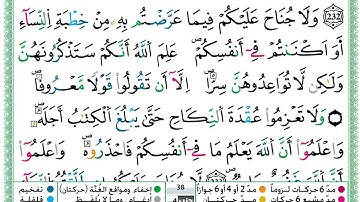 ۝٢٣٢ وَلَا جُنَاحَ عَلَيْكُمْ فِيمَا عَرَّضْتُم بِهِۦ مِنْ خِطْبَةِ ٱلنِّسَآءِ
أَوْ أَكْنَنتُمْ فِىٓ أَنفُسِكُمْ ۚ عَلِمَ ٱللَّهُ أَنَّكُمْ سَتَذْكُرُونَهُنَّ
وَلَـٰكِن لَّا تُوَاعِدُوهُنَّ سِرًّا إِلَّآ أَن تَقُولُوا۟ قَوْلًا مَّعْرُوفًا ۚ
وَلَا تَعْزِمُوا۟ عُقْدَةَ ٱلنِّكَاحِ حَتَّىٰ يَبْلُغَ ٱلْكِتَـٰبُ أَجَلَهُۥ ۚ
وَٱعْلَمُوٓا۟ أَنَّ ٱللَّهَ يَعْلَمُ مَا فِىٓ أَنفُسِكُمْ فَٱحْذَرُوهُ ۚ وَٱعْلَمُوٓا۟
مدّ 6 حركات لزوماً مدّ 2 أو 4 أو 6 جوازاً 38 إخفاء ومواقع الغُنَّة (حركتان) تفخيم
مدّ مشبع 6 حركات مدّ حركتان إدغام وما لا يُلفَظ قلقلة